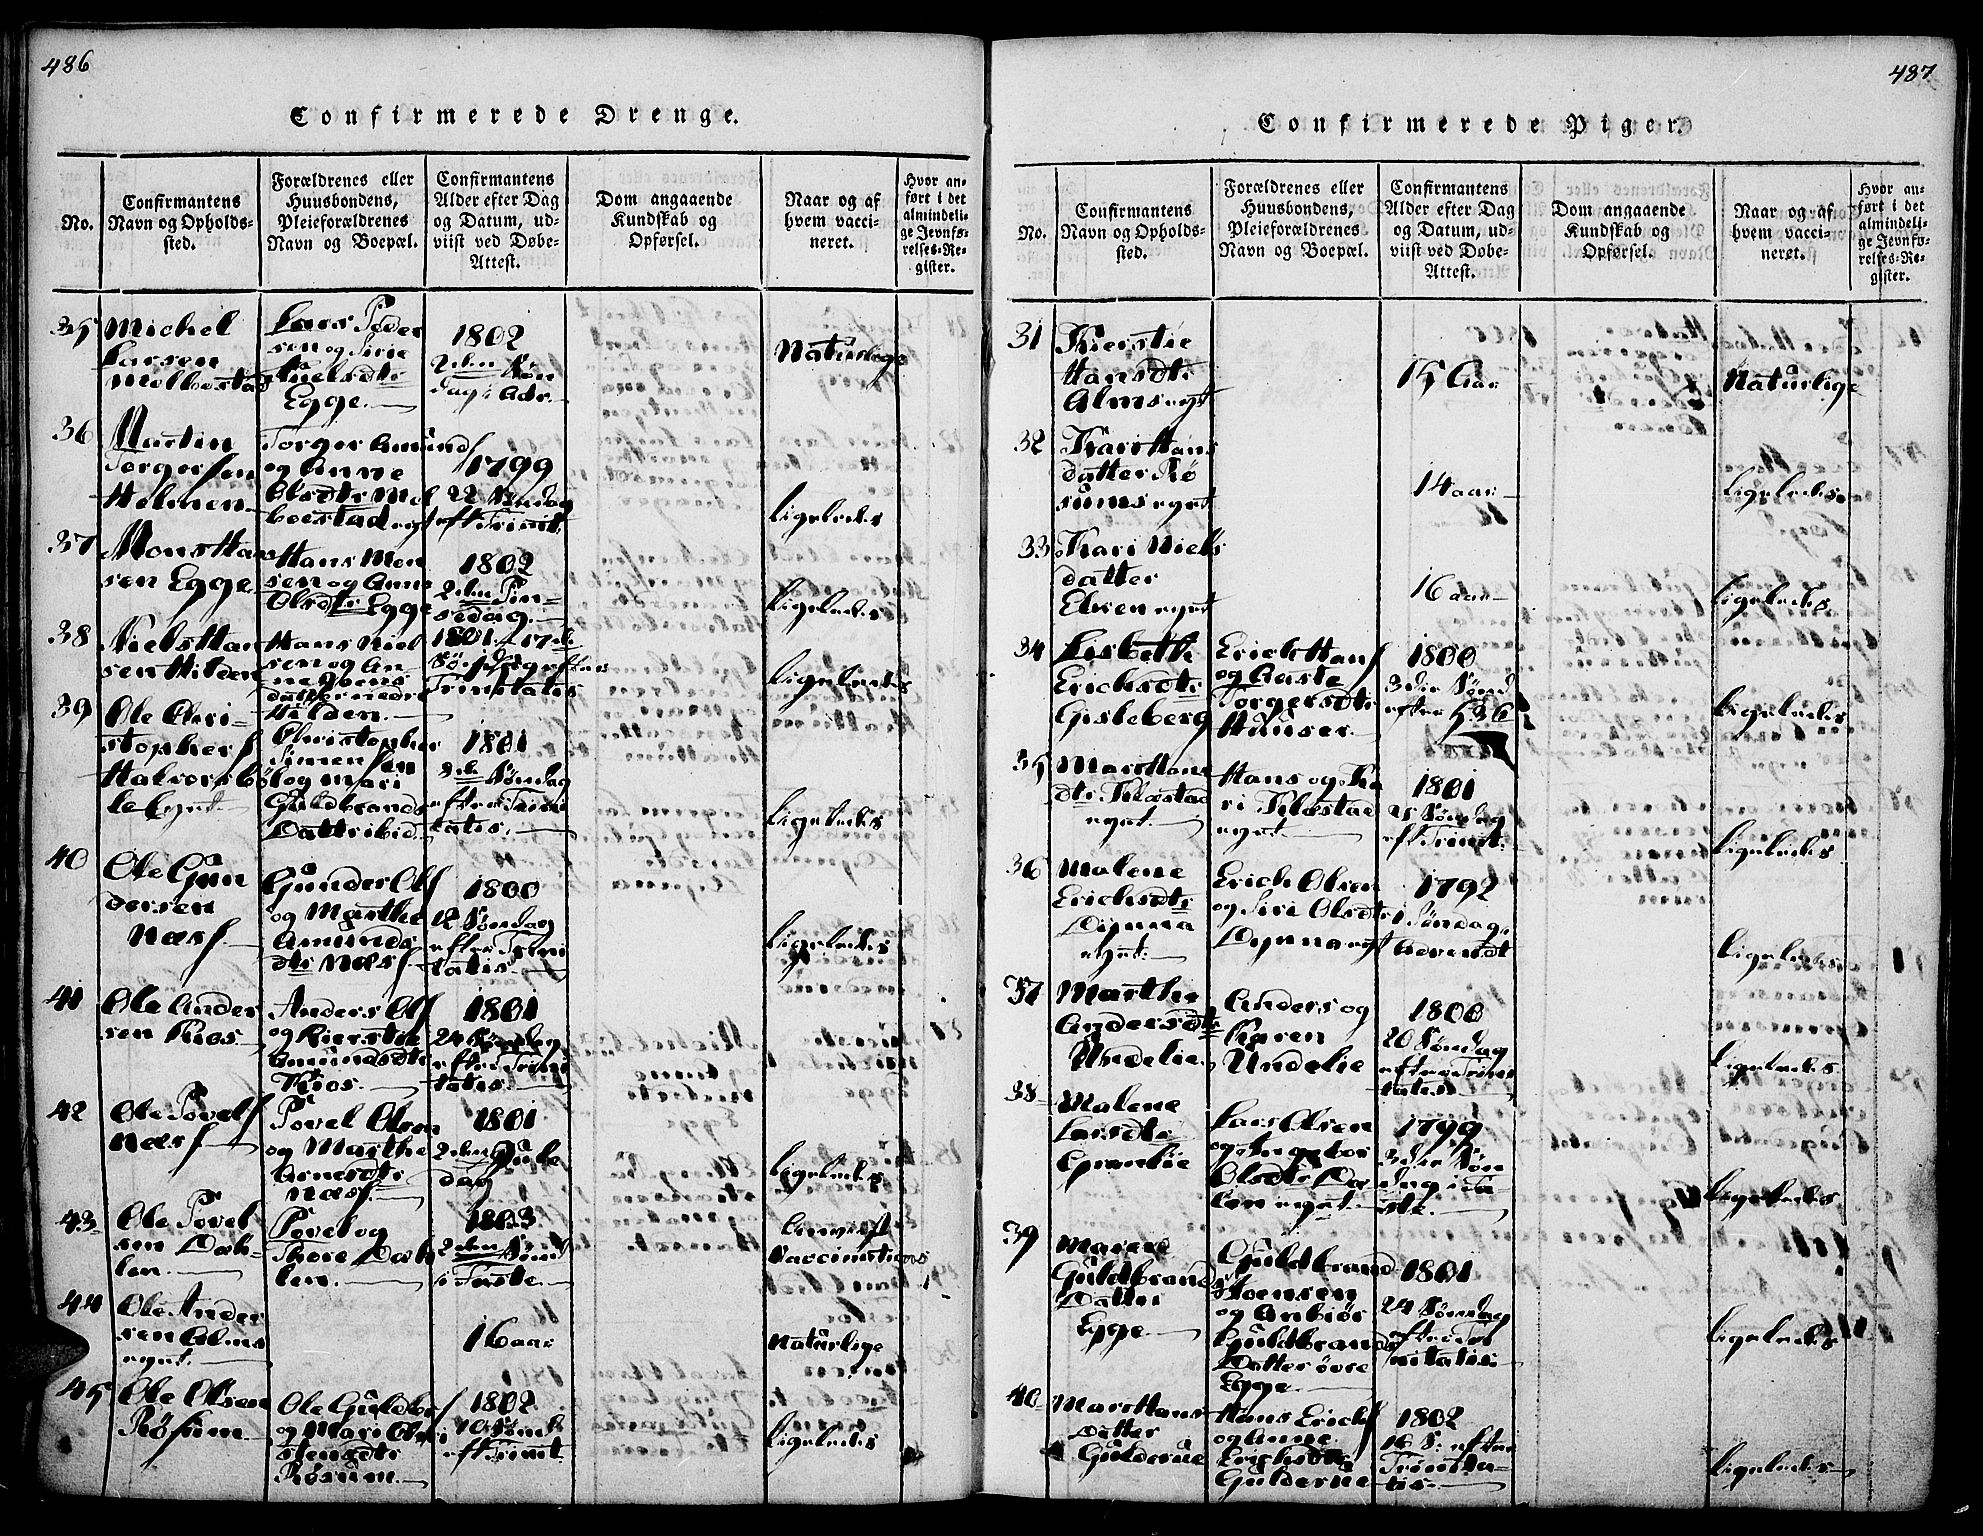 486
Confirmerede Drenge.
No.
Confirmantens
Navn og Opholds-
sted.
Forældrenes eller
Huusbondens,
Pleieforældrenes
Navn og Boepæl.
Confirmantens
Alder efter Dag
og Datum, ud-
viist ved Døbe-
Attest.
Dom angaaende
Kundskab og
Opførsel.
Naar og af
hvem vacci-
neret.
Hvor an-
ført i det
almindeli-
ge Jevnfø-
relses-Re-
gister.
35
Michel
Larsen
Melbostad
Lars Peder
sen og Sirie
Nielsdtr
Egge.
1802
2den Søn
dag i Adv.
Naturlige
36
Martin
Torgersen
Holmen
Torger Amunds
og Anne
Olsdtr Mel
boestad eyet
1799
22 Søndag
eft Trinit:
Ligeledes
37
Mons Han
sen Egge
Hans Mon
sen og Anne
Olsdtr Egge
1802
2den Pin-
sedag.
Ligeledes
38
Niels Han
sen Hilden
Hans Niel
sen og An
ne
datter nedre
Hilden.
1801. 17de
Trinitatis
Ligeledes
39
Ole Chri-
stophers
Halvorsbø
le Eyet
Christopher
Simensen
og Mari
Guldbrands
Datter ibid.
1801
Søndag
efter Trini
tatis.
Ligeledes
40
Ole Gun
dersen
Næss
Gunder Ols
og Marthe
Amunds
dtr Næss
1800
12 Søndag
efter Trini
tatis
Ligeledes
41
Ole Ander
sen Kios
Anders Ols
og Kierstie
Amundsdtr
Kios.
1801
24 Søndag
efter Trini
tatis.
42
Ole Povels
Næss
Povel Olsen
og Marthe
Arnesdtr
Næss.
1801
2den Jule
dag
Ligeledes
43
Ole Povel
sen Dah-
len.
Povel og
Thore Dah
len.
1803
2den Sønd
i Faste.
Vaccinations
44
Ole Ander
sen Alms
eyet.
16 aar
Naturlige
45
Ole Olsen
Røsum
Ole Guldbr
og Mari Ol
stensdtr
Røsum.
1802
10 Sønd
eft Trinit
Ligeledes
487
Confirmerede Piger.
No.
Confirmantens
Navn og Opholds-
sted.
Forældrenes eller
Huusbondens,
Pleieforældrenes
Navn og Boepæl.
Confirmantens
Alder efter Dag
og Datum, ud-
viist ved Døbe-
Attest.
Dom angaaende
Kundskab og
Opførsel.
Naar og af
hvem vacci-
neret.
Hvor an-
ført i det
almindeli-
ge Jevnfø-
relses-Re-
gister.
31
Kierstie
Hansdtr
Alms eyet
15 Aar
Naturlige
32
Kari Hans
datter Rø
sums eyet
14 aar
Ligeledes
33
Kari Niels
datter
Elken eyet
16 aar
Ligeledes
34
Lisbethe
Erichsdtr
Gisleberg
Erich Hans
og Aaste
Torgersdtr
Hauser
1800
3die Sønd
efter
Ligeledes
35
Mari Hans
dtr Klæstad
eyet.
Hans og Ka
ri Klæstad
eyet.
1801
21 Søndag
eft Trinit:
Ligeledes
36
Malene
Erichsdtr
Dynna
eyet:
Erich Olsen
og Siri Olsdtr
Dynna eyet
1792
1 Søndag,
Advendt
Ligeledes
37
Marthe
Andersdtr
Undelie
Anders og
Karen
Undelie
1800
20 Søndag
efter Trini
tatis
Ligeledes
38
Malene
Larsdtr
Granlie
Lars Olsen
og Ingebor
Olsdtr Da
len eyet
1799
3die Søn
dag i Fa
ste.
Ligeledes
39
Maren
Guldbrands
Datter
Egge
Guldbrand
Joensen
og Anbiør
Guldbrands
Datter øvre
Egge
1801
24 Søndag
efter Tri
nitatis.
Ligeledes
40
Mari Hans
Datter
Gulderue
Hans Erichs
og Anne
Erichsdtr
Guldenrue
1802
16 S: efter
Trinita-
tis.
Ligeledes